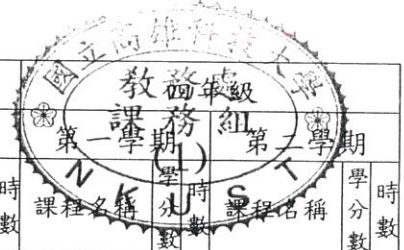 國立高雄科技大學
教務處
課務組
(1)
NKUST
年級
第一學期 第二學期
時數 課程名稱 學分數 時數 課程名稱 學分數 時數